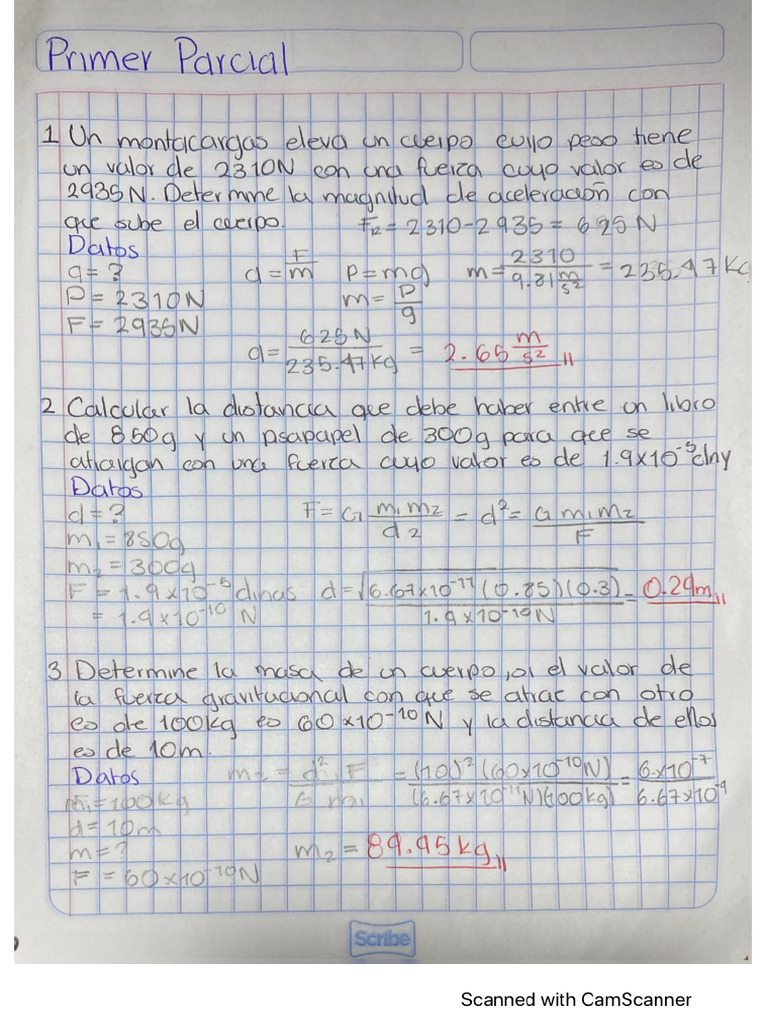 Primer Parcial
1 Un montacargas eleva un cuerpo cuyo peso tiene
un valor de 2310N con una fuerza cuyo valor es de
2935N. Determine la magnitud de aceleración con
que sube el cuerpo. Fr = 2310-2935 = 625 N
Datos
a = ? a = F/m P = mg m = 2310/9.81 m/s² = 235.47 Kg
P = 2310N m = P/g
F = 2935N
a = 625N/235.47kg = 2.65 m/s² //
2 Calcular la distancia que debe haber entre un libro
de 850g y un psapapel de 300g para que se
atraigan con una fuerza cuyo valor es de 1.9x10⁻⁵ diny
Datos
d = ? F = G m₁m₂/d² = d² = G m₁m₂/F
m₁ = 850g
m₂ = 300g
F = 1.9x10⁻⁵ dinas d = √6.67x10⁻¹¹ (0.85)(0.3)/1.9x10⁻¹⁰N = 0.29m //
= 1.9x10⁻¹⁰ N
3 Determine la masa de un cuerpo, si el valor de
la fuerza gravitacional con que se atrae con otro
es de 100kg es 60x10⁻¹⁰N y la distancia de ellos
es de 10m.
Datos m₂ = d².F/G m₁ = (10)² (60x10⁻¹⁰N)/(6.67x10⁻¹¹N)(100kg) = 6x10⁻⁷/6.67x10⁻⁹
m₁ = 100kg
d = 10m
m = ? m₂ = 89.95kg //
F = 60x10⁻¹⁰N
Scribe
Scanned with CamScanner